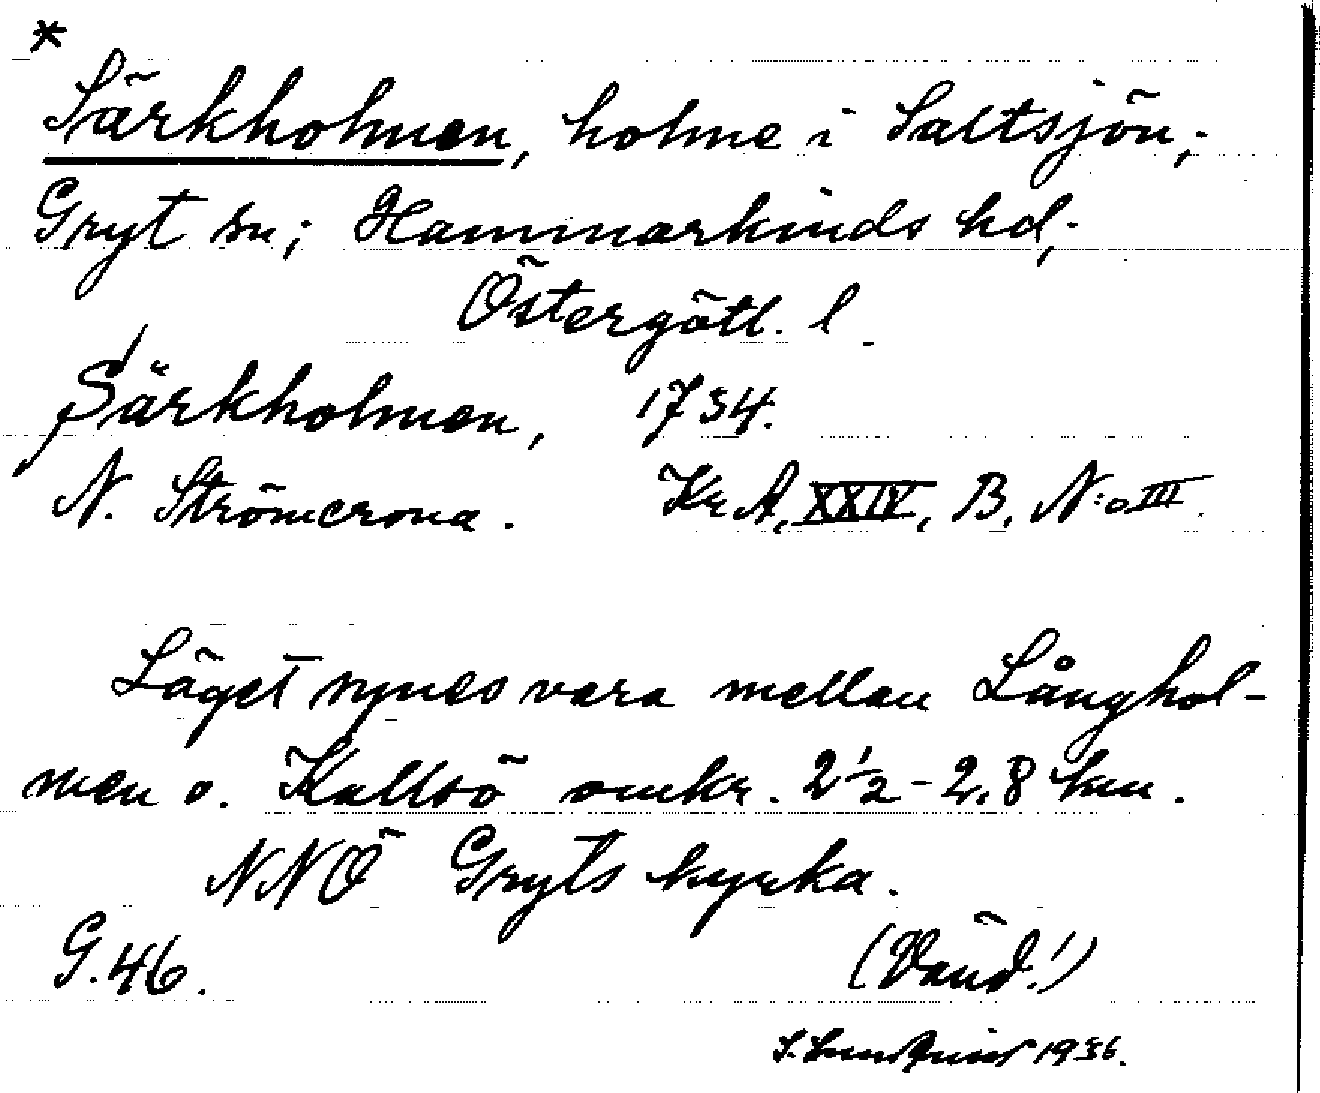 *
Särkholmen, holme i Saltsjön,
Gryt sn; Hammarkinds hd,
Östergötl. l
Särkholmen, 1734.
N. Strömcrona. Kr A, XXIV, B, N:o III.
Läget synes vara mellan Långhol-
men o. Kallsö omkr. 2½-2,8 km.
NNÖ Gryts kyrka.
G. 46. (Vänd!)
1936.